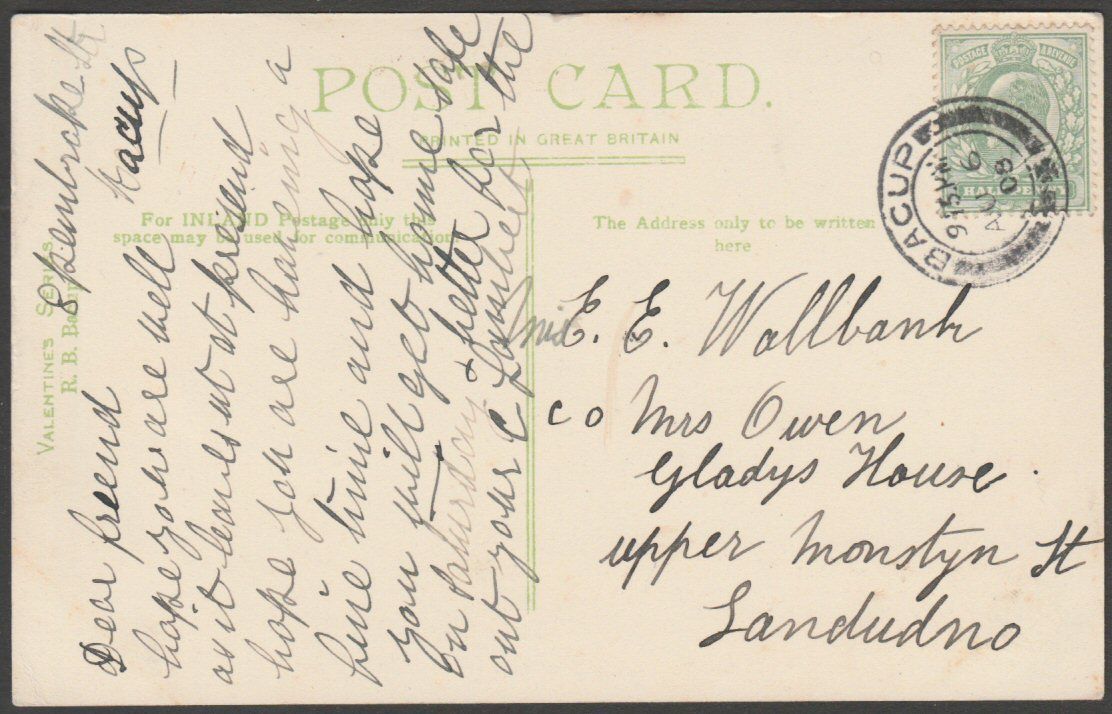 POST CARD.
PRINTED IN GREAT BRITAIN
For INLAND Postage only this
space may be used for communication.
The Address only to be written
here
VALENTINE'S SERIES
R. B.
POSTAGE REVENUE
HALFPENNY
BACUP
9 15 PM
AU 6
08
8 Pembroke St
Bacup
Dear freend
hope you are well
as it leaves us at presend
hope you are haveing a
fine time and hope
you will get home safe
on Saturday & better for the
out your C
E. E. Wallbank
c o Mrs Owen
Gladys House.
upper Monstyn St
Landudno